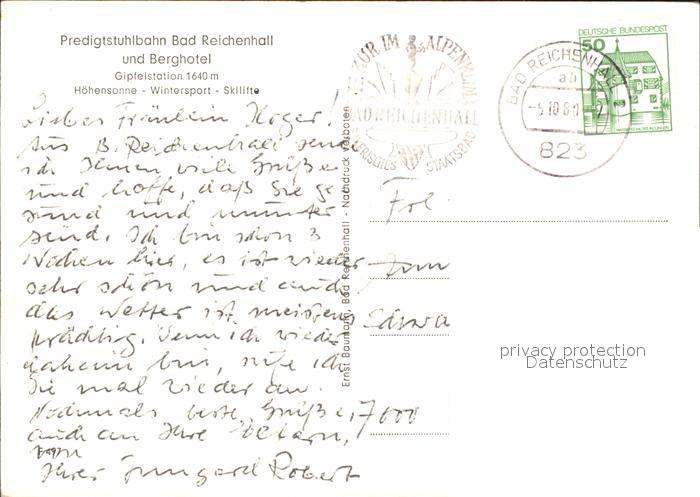 Predigtstuhlbahn Bad Reichenhall
und Berghotel
Gipfelstation 1640 m
Höhensonne - Wintersport - Skilifte
Liebes Fräulein Hoger!
Aus B. Reichenhall sende
ich Ihnen viele Grüße
und hoffe, daß Sie ge
sund und munter
sind. Ich bin schon 3
Wochen hier, es ist wieder
sehr schön und auch
das Wetter ist meistens
prächtig. Wenn ich wieder
daheim bin, rufe ich
Sie mal wieder an.
Nochmals beste Grüße,
auch an Ihre Eltern,
Ihre Irmgard Robert
Ernst Baumann, Bad Reichenhall - Nachdruck verboten
ZUR KUR IM ALPENKLIMA
BAD REICHENHALL
BAYERISCHES STAATSBAD
BAD REICHENHALL
ab
-5.10.80-
823
DEUTSCHE BUNDESPOST
50
Frl.
Edewa
7000
privacy protection
Datenschutz